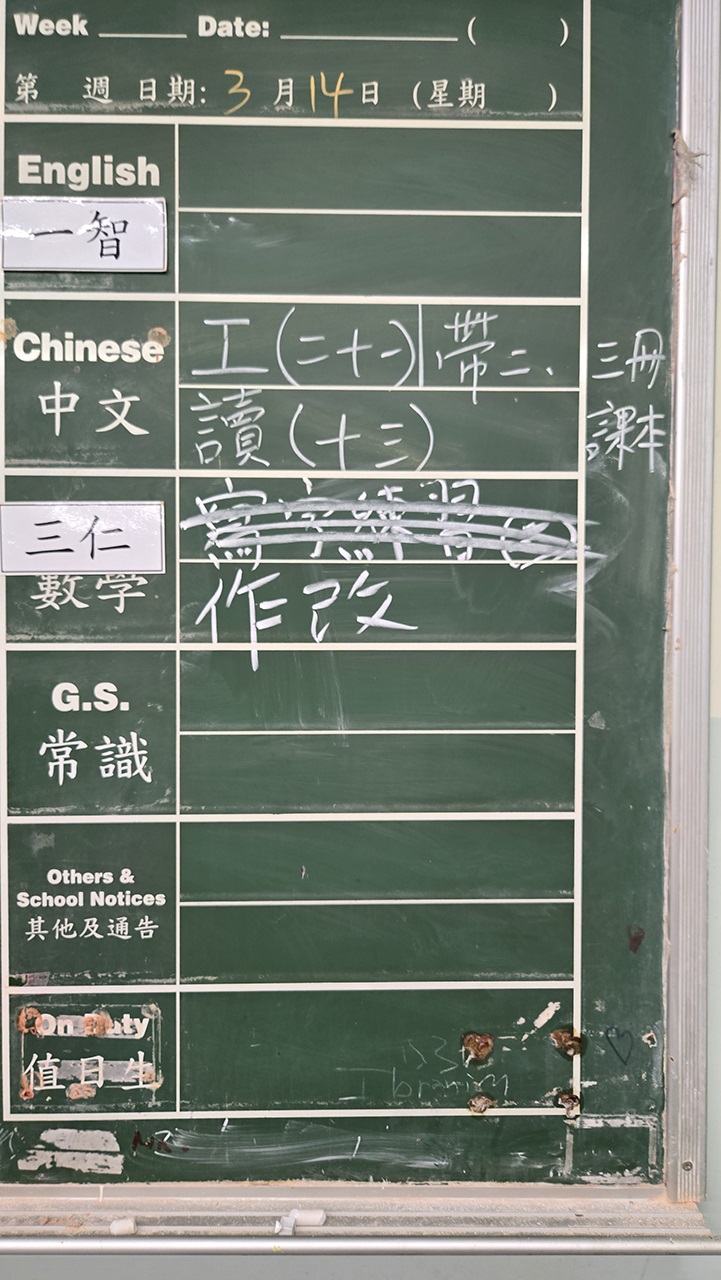 Week Date: ( )
第 週 日期: 3 月 14 日 (星期 )
English
一智
Chinese
中文
工(二十一)|帶二、三冊
讀(十三) 課本
三仁
寫字練習(3)
數學
作改
G.S.
常識
Others &
School Notices
其他及通告
On Duty
值日生